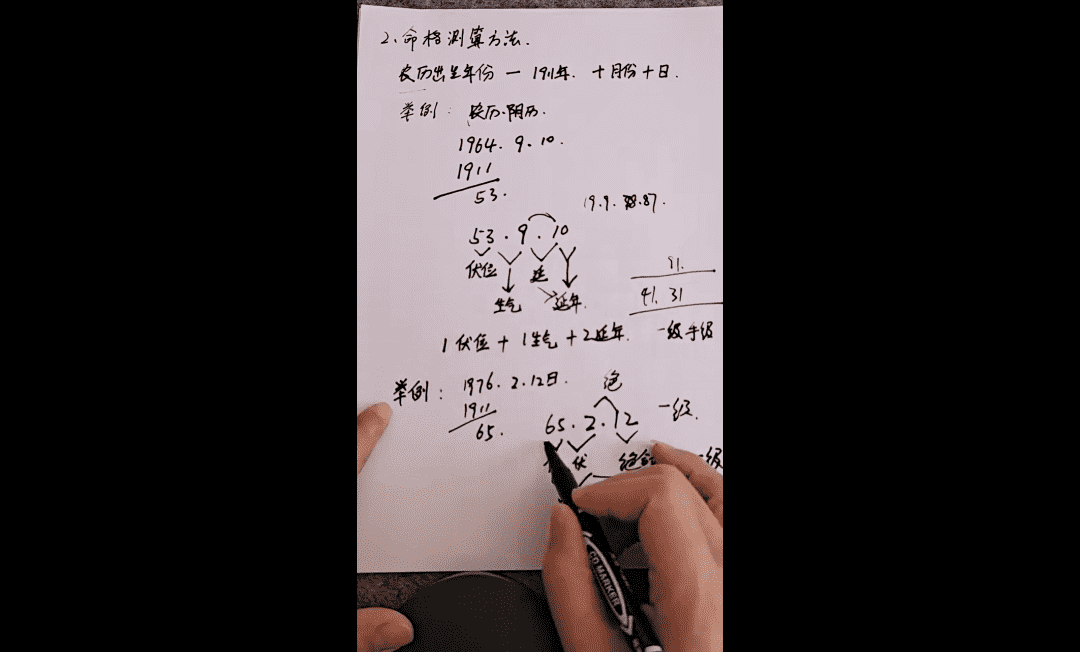 2、命格测算方法.
农历出生年份 — 1911年. 十月份十日.
举例: 农历.阴历.
1964. 9. 10.
1911
53.
19. 9. 87.
53. 9. 10
伏位 延
生气 延年.
91.
41. 31
1伏位 + 1生气 + 2延年. 一级半级
举例: 1976. 2. 12日. 绝
1911
65.
65. 2. 12 一级.
伏 绝 级
CD MARKER